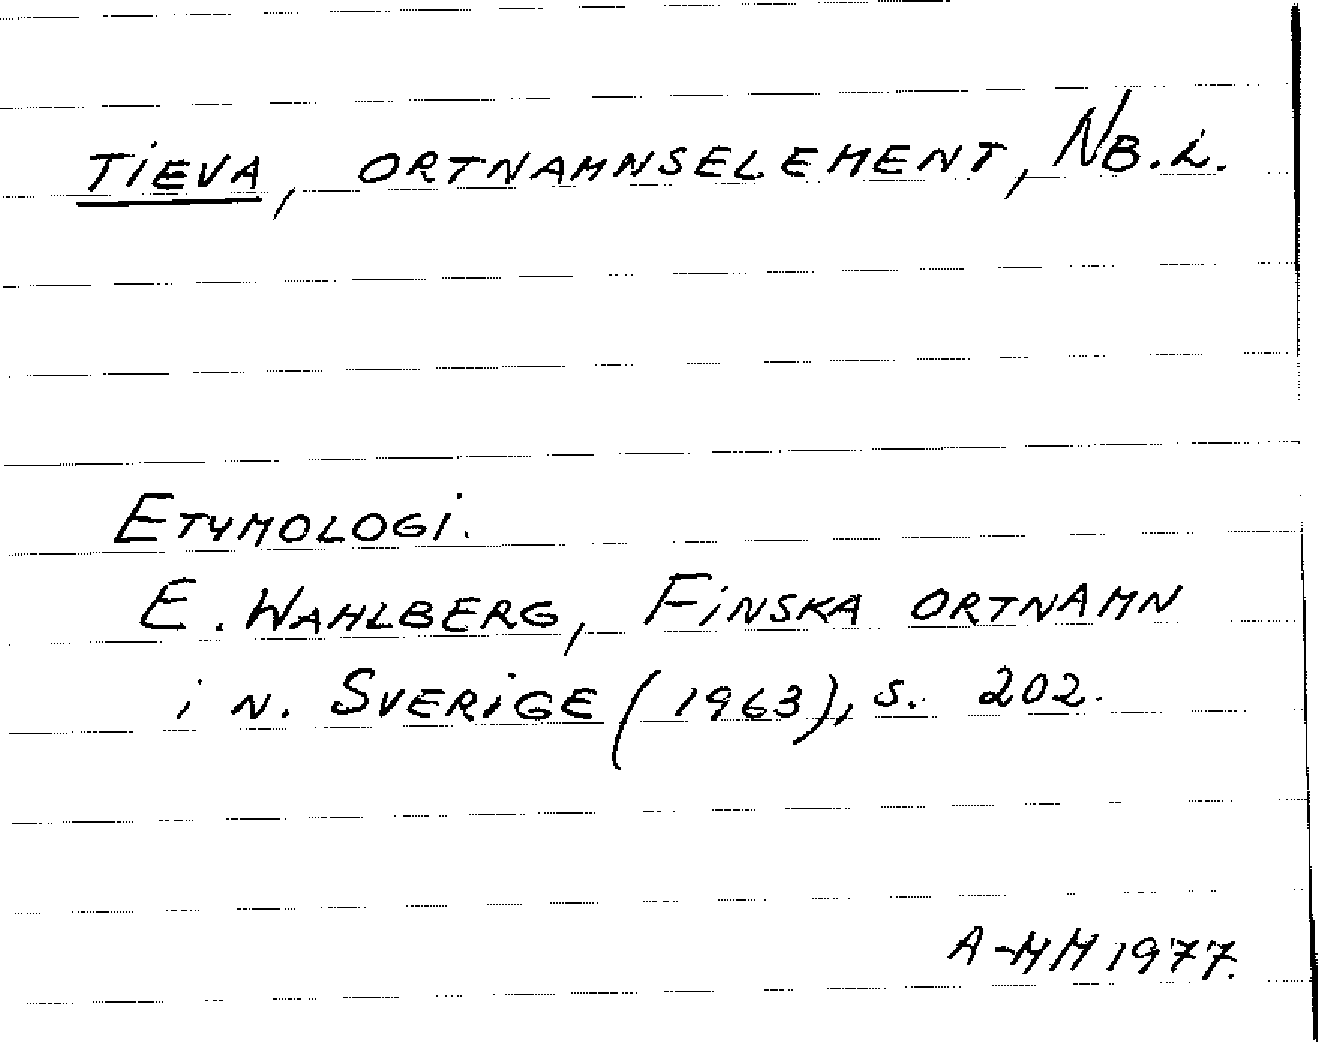 TIEVA, ORTNAMNSELEMENT, NB.L.
ETYMOLOGI.
E. WAHLBERG, FINSKA ORTNAMN
i N. SVERIGE (1963), s. 202.
A-MM 1977.